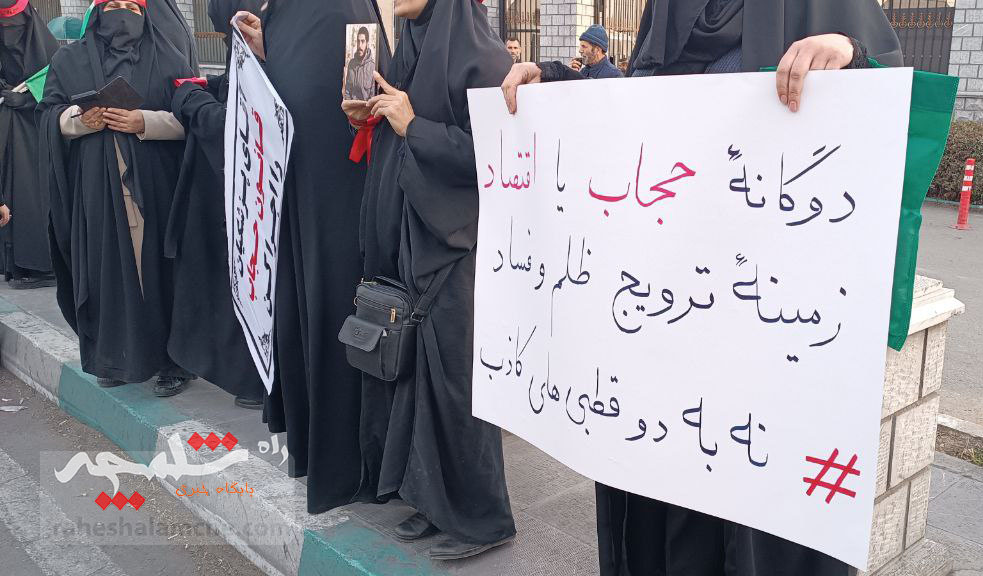 دوگانهٔ حجاب یا اقتصاد
زمینهٔ ترویج ظلم و فساد
نه به دو قطبی های کاذب
#
قانون حجاب
را اجرا کن
راه شلمچه
پایگاه خبری
raheshalamche.com